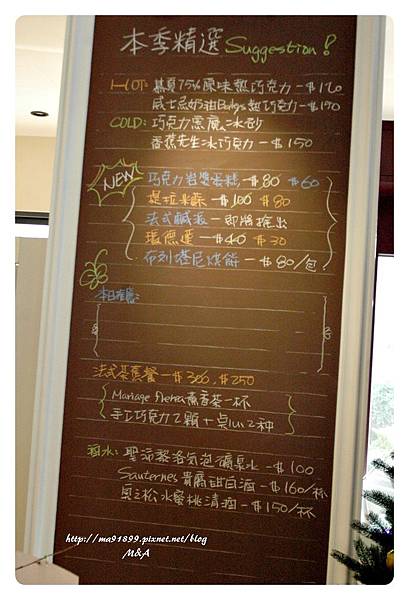 本季精選 Suggestion!
HOT: 75% 原味熱巧克力-$170
威士忌奶油Baileys熱巧克力-$190
COLD: 巧克力黑魔冰砂
香蕉先生冰巧克力-$150
NEW
巧克力岩漿蛋糕-$80 $60
提拉米蘇-$100 $80
法式鹹派-即將推出
瑪德蓮-$40 $30
布列塔尼烘餅-$80/包
本日推薦:
法式茶薰餐-$300、$250
Mariage Freres 茶一杯
手工巧克力2顆+桌lui2種
酒水: 聖沛黎洛氣泡礦泉水-$100
Sauternes 貴腐甜白酒-$160/杯
奧之松水蜜桃清酒-$150/杯
http://ma91899.pixnet.net/blog
M&A